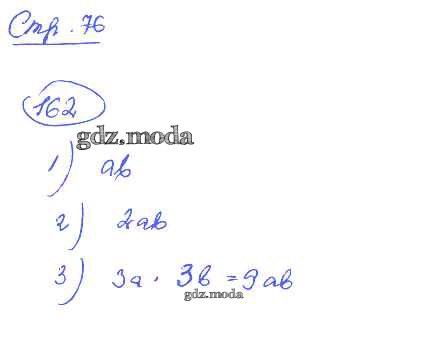 Стр. 76
162
gdz.moda
1) ab
2) 2ab
3) 3a · 3b = 9ab
gdz.moda